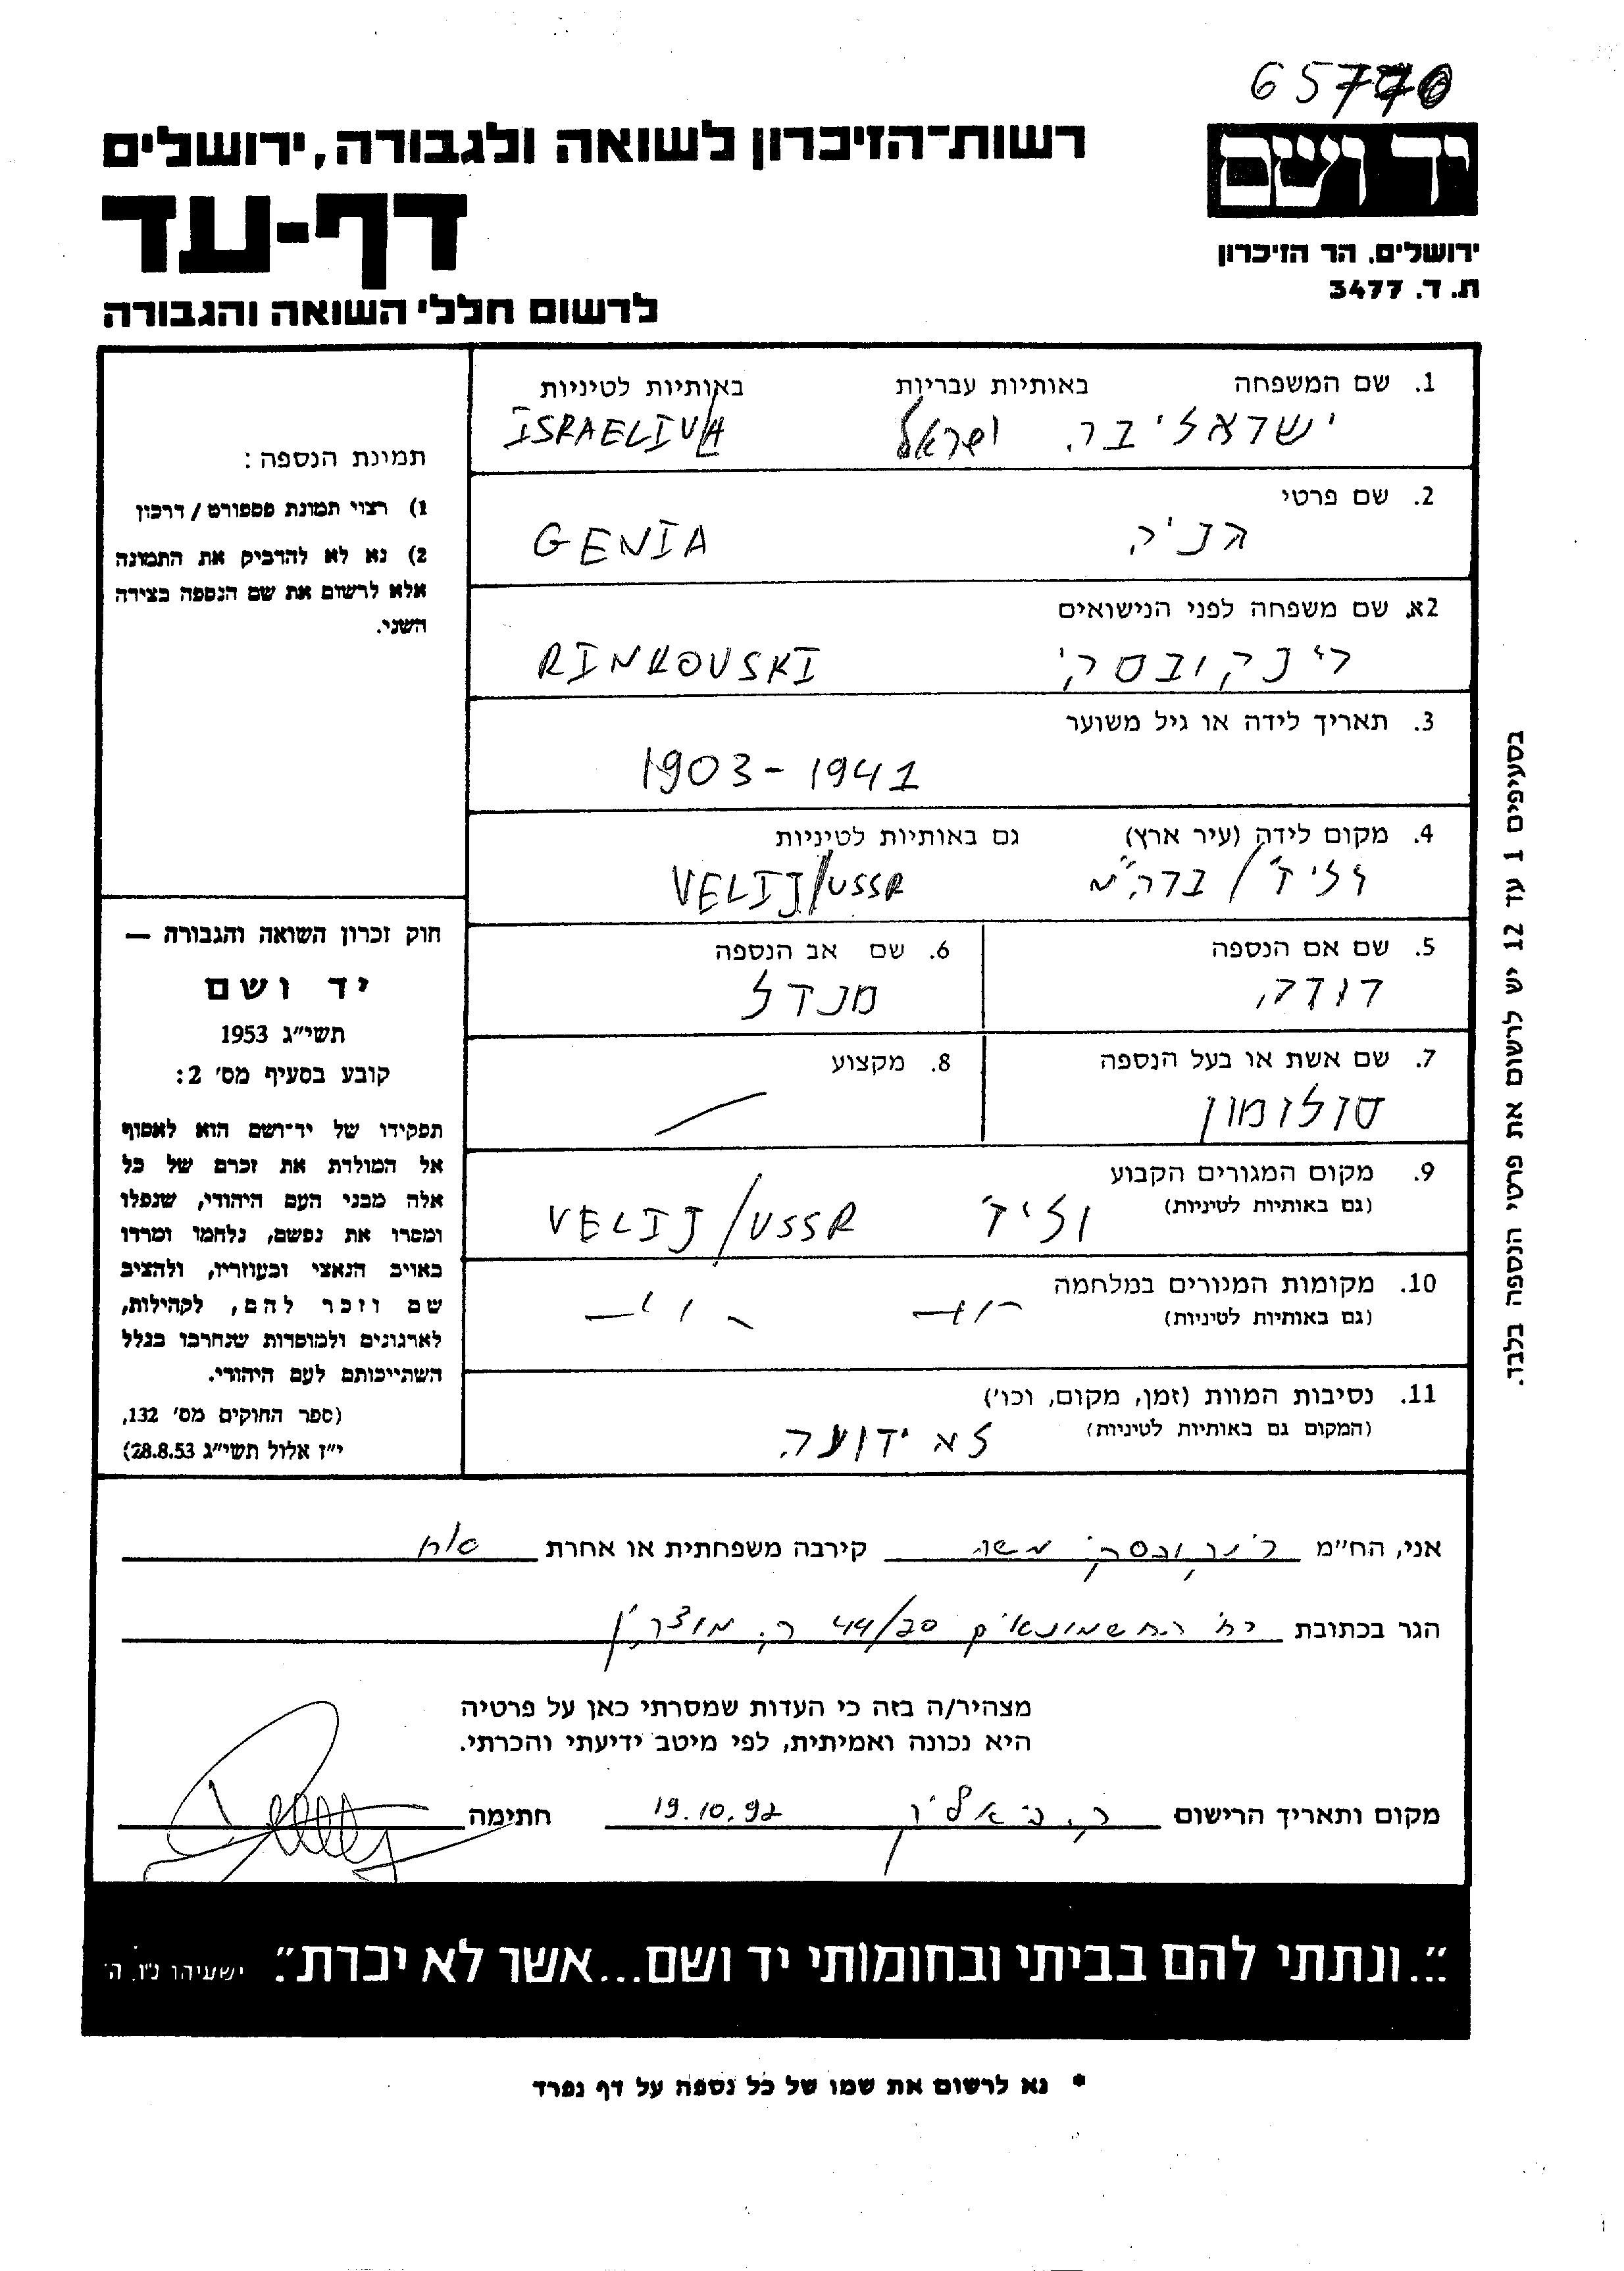 65770
רשות־הזיכרון לשואה ולגבורה, ירושלים
יד ושם
דף-עד
ירושלים, הר הזיכרון
ת. ד. 3477
לרשום חללי השואה והגבורה
1. שם המשפחה באותיות עבריות באותיות לטיניות
ישראליבה ישראל ISRAELIVA
2. שם פרטי
גניה GENIA
2א. שם משפחה לפני הנישואים
רינקובסקי RINKOVSKI
3. תאריך לידה או גיל משוער
1903-1941
4. מקום לידה (עיר ארץ) גם באותיות לטיניות
וליז'/ בריה"מ VELIJ/USSR
5. שם אם הנספה 6. שם אב הנספה
דודה מנדל
7. שם אשת או בעל הנספה 8. מקצוע
סולומון
9. מקום המגורים הקבוע
(גם באותיות לטיניות)
וליז' VELIJ/USSR
10. מקומות המגורים במלחמה
(גם באותיות לטיניות)
11. נסיבות המוות (זמן, מקום, וכו')
(המקום גם באותיות לטיניות)
לא ידועה
תמונת הנספה:
1) רצוי תמונת פספורט / דרכון
2) נא לא להדביק את התמונה
אלא לרשום את שם הנספה בצידה
השני.
חוק זכרון השואה והגבורה —
יד ושם
תשי״ג 1953
קובע בסעיף מס׳ 2:
תפקידו של יד־ושם הוא לאסוף
אל המולדת את זכרם של כל
אלה מבני העם היהודי, שנפלו
ומסרו את נפשם, נלחמו ומרדו
באויב הנאצי ובעוזריו, ולהציב
שם וזכר להם, לקהילות,
לארגונים ולמוסדות שנחרבו בגלל
השתייכותם לעם היהודי.
(ספר החוקים מס׳ 132,
י״ז אלול תשי״ג 28.8.53)
בסעיפים 1 עד 12 יש לרשום את פרטי הנספה בלבד.
אני, הח״מ רינקובסקי משה קירבה משפחתית או אחרת אח
הגר בכתובת רח' החשמונאים 44/20 ק. מוצקין
מצהיר/ה בזה כי העדות שמסרתי כאן על פרטיה
היא נכונה ואמיתית, לפי מיטב ידיעתי והכרתי.
מקום ותאריך הרישום ק. ביאליק 19.10.92 חתימה
"...ונתתי להם בביתי ובחומותי יד ושם...אשר לא יכרת". ישעיהו נ"ו, ה'
* נא לרשום את שמו של כל נספה על דף נפרד